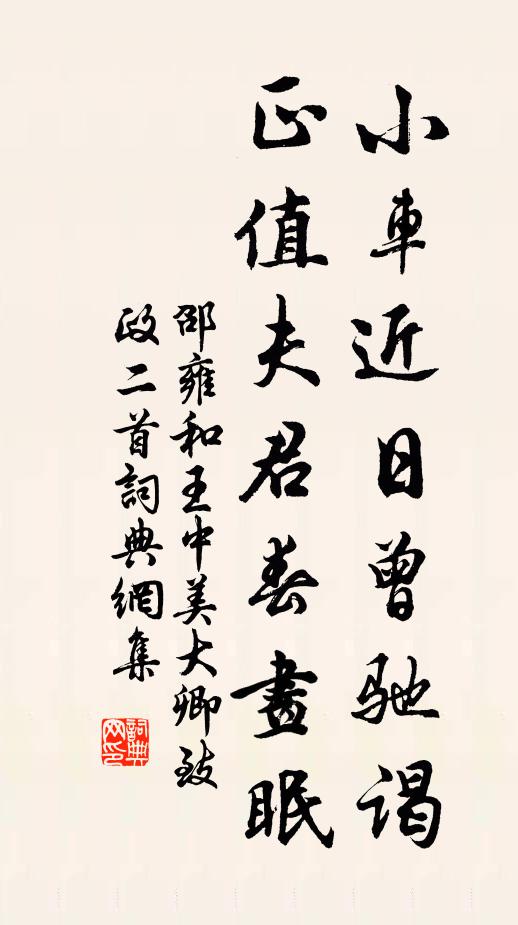 小車近日曾馳謁
正值夫君春晝眠
邵雍和王中美大卿致
政二首詞典網集
詞典
网印